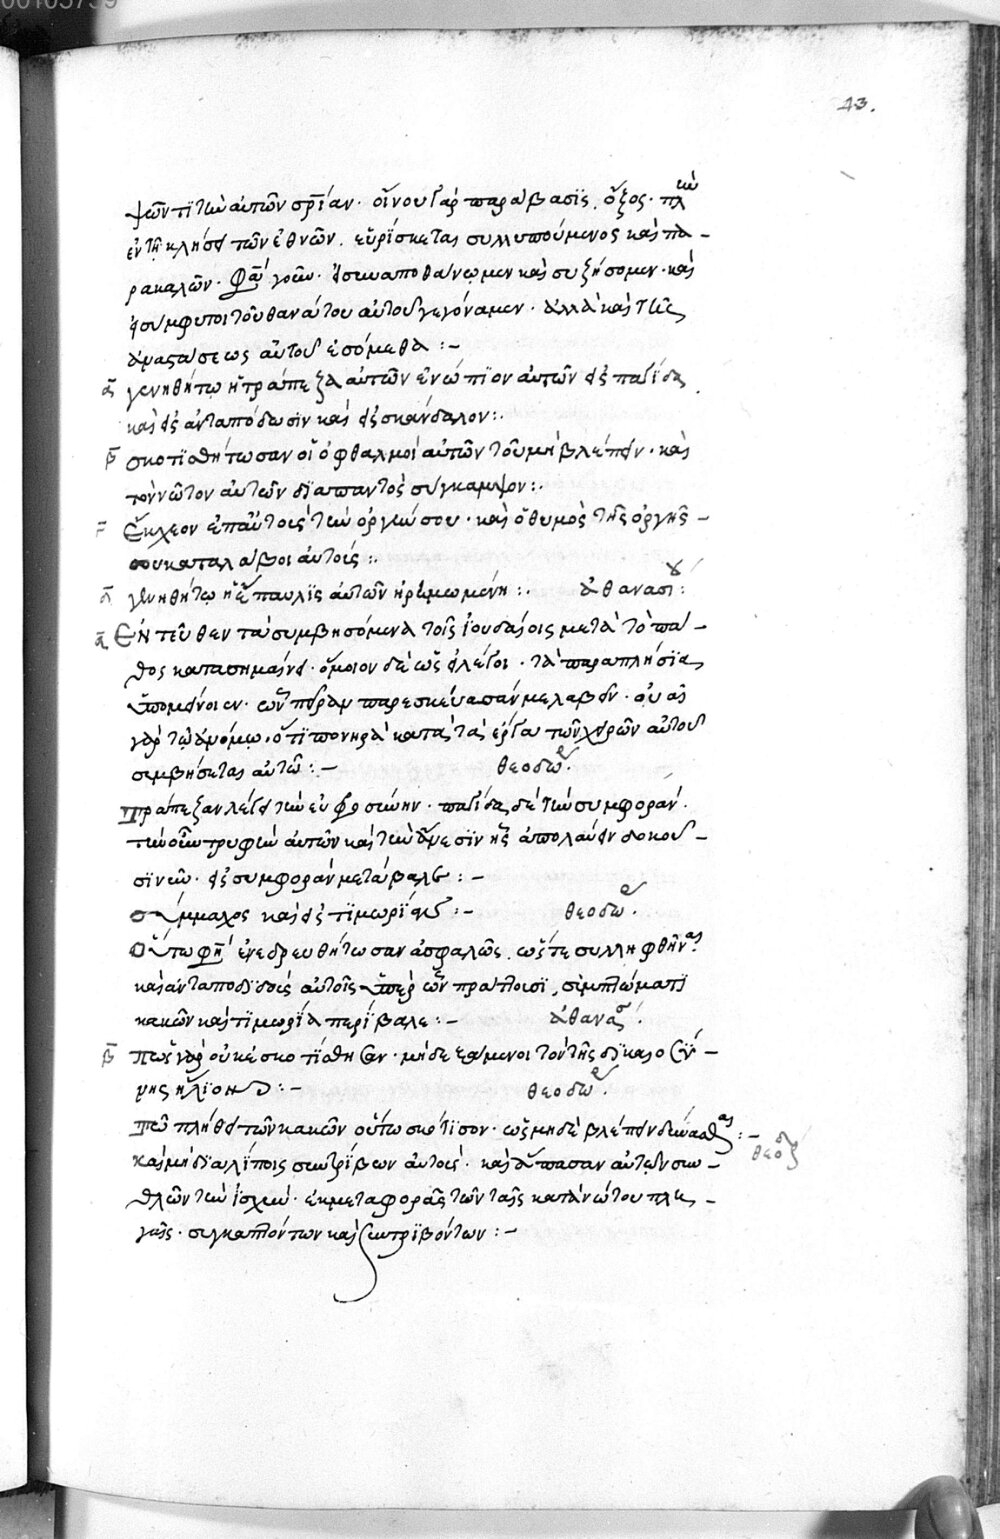 43.
ψῶν τὶ τὴν αὐτῶν σρίαν. οἴνου γὰρ παράβασις, ὄξος. πλὴν
ἐν τῇ κλήσει τῶν ἐθνῶν. εὑρίσκεται συλλυπούμενος καὶ πα-
ρακαλῶν. φασὶ γοῦν. εἰ συναποθάνωμεν καὶ συζήσομεν. καὶ
εἰ σύμφυτοι τοῦ θανάτου αὐτοῦ γεγόναμεν. ἀλλὰ καὶ τῆς
ἀναστάσεως αὐτοῦ ἐσόμεθα :-
α γενηθήτω ἡ τράπεζα αὐτῶν ἐνώπιον αὐτῶν εἰς παγίδα,
καὶ εἰς ἀνταπόδωσιν καὶ εἰς σκάνδαλον :.
β σκοτισθήτωσαν οἱ ὀφθαλμοὶ αὐτῶν τοῦ μὴ βλέπειν. καὶ
τὸν νῶτον αὐτῶν διαπαντὸς σύγκαμψον :.
Ἔκχεον ἐπ' αὐτοὺς τὴν ὀργήν σου. καὶ ὁ θυμὸς τῆς ὀργῆς -
σου καταλάβοι αὐτούς :.
δ γενηθήτω ἡ ἔπαυλις αὐτῶν ἠρημωμένη :. ἀθανασίου :
α Ἐντεῦθεν τὰ συμβησόμενα τοῖς ἰουδαίοις μετὰ τὸ πά-
θος κατασημαίνει. ὅμοιον δὲ ὡς εἰ λέγοι. τὰ παραπλήσια
ὑπομείνοιεν. ὧν πεῖραν παρεσκεύασάν με λαβεῖν. οὐαὶ
γὰρ τῷ ἀνόμῳ, ὅτι πονηρὰ κατὰ τὰ ἔργα τῶν χειρῶν αὐτοῦ
συμβήσεται αὐτῷ :- θεοδώ.
Τράπεζαν λέγει τὴν εὐφροσύνην. παγίδα δὲ τὴν συμφοράν.
τὴν οὖν τρυφὴν αὐτῶν καὶ τὴν ἄνεσιν ἧς ἀπολαύειν δοκοῦ-
σιν νῦν. εἰς συμφορὰν μετάβαλε :-
σύμμαχος καὶ εἰς τιμωρίαν :- θεοδώ.
Οὕτω φησὶ ἐνεδρευθήτωσαν ἀσφαλῶς. ὥστε συλληφθῆναι.
καὶ ἀνταποδιδοὺς αὐτοῖς ὑπὲρ ὧν πράττουσι, συμπτώματι
κακῶν καὶ τιμωρίᾳ περίβαλε :- ἀθανασ.
β πῶς γὰρ οὐκ ἐσκοτίσθησαν. μὴ δεξάμενοι τὸν τῆς δικαιοσύ-
νης ἥλιον :- θεοδώ.
Τῷ πλήθει τῶν κακῶν οὕτω σκότισον. ὡς μηδὲ βλέπειν δύνασθαι :-
θεοδ
καὶ μὴ διαλίποις συντρίβων αὐτούς. καὶ ἅπασαν αὐτῶν συν-
θλῶν τὴν ἰσχύν. ἐκ μεταφορᾶς τῶν ταῖς κατὰ νώτου πλη-
γαῖς. συγκαπτόντων καὶ συντριβόντων :-